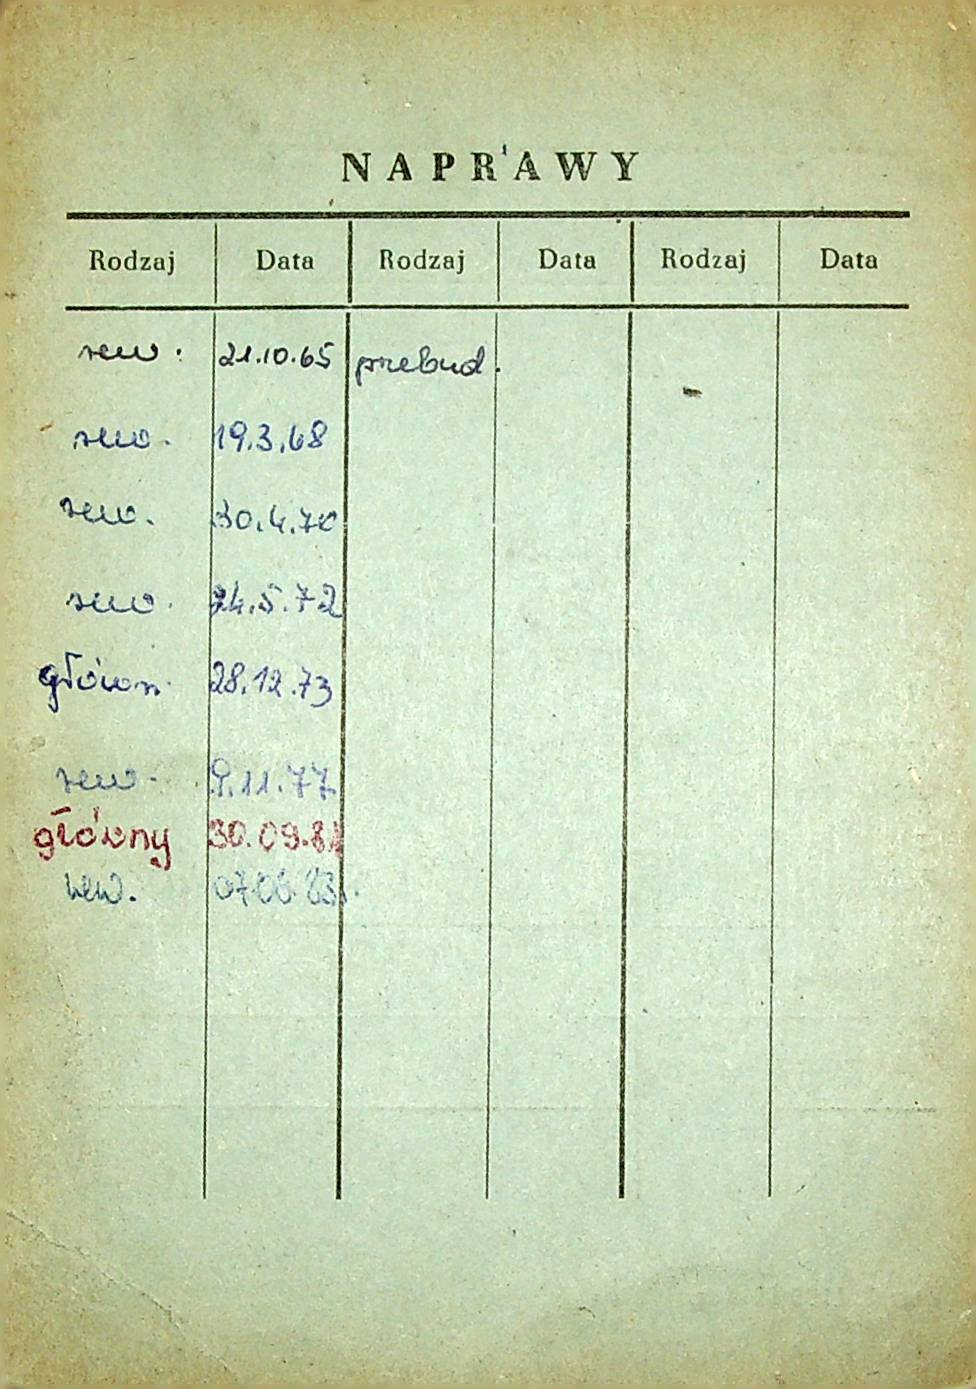 NAPRAWY
Rodzaj Data Rodzaj Data Rodzaj Data
rew. 21.10.65 przebud.
rew. 19.3.68
rew. 30.4.70
rew. 24.5.72
główn. 28.12.73
rew. 9.11.77
główny 30.09.81
rew.